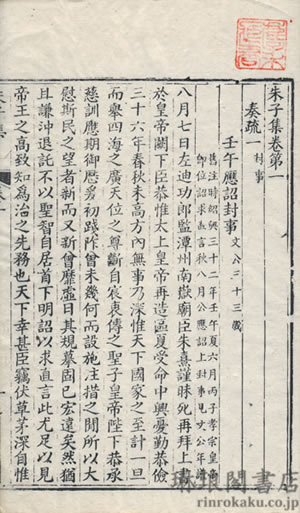 朱子集卷第一
奏疏一 封事
壬午應詔封事 文公三十三歲
舊注時紹興三十二年壬午夏六月丙子孝宗皇帝
即位詔求直言秋八月公應詔上封事見文公年譜
八月七日左迪功郎監潭州南嶽廟臣朱熹謹昧死再拜上書
於皇帝闕下臣恭惟太上皇帝再造區夏受命中興憂勤恭儉
三十六年春秋未高方內無事乃深惟天下國家之至計一旦
而舉四海之廣天位之尊斷自宸衷傳之聖子皇帝陛下恭承
慈訓應期御歷爰初踐阼曾未幾何而設施注措之間所以大
慰斯民之望者新而又新曾靡虛日其規摹固已宏遠矣然猶
且謙沖退託不以聖智自居首下明詔以求直言此尤足以見
帝王之高致知為治之先務也天下幸甚臣竊伏草茅深自惟
琳琅閣書店
rinrokaku.co.jp